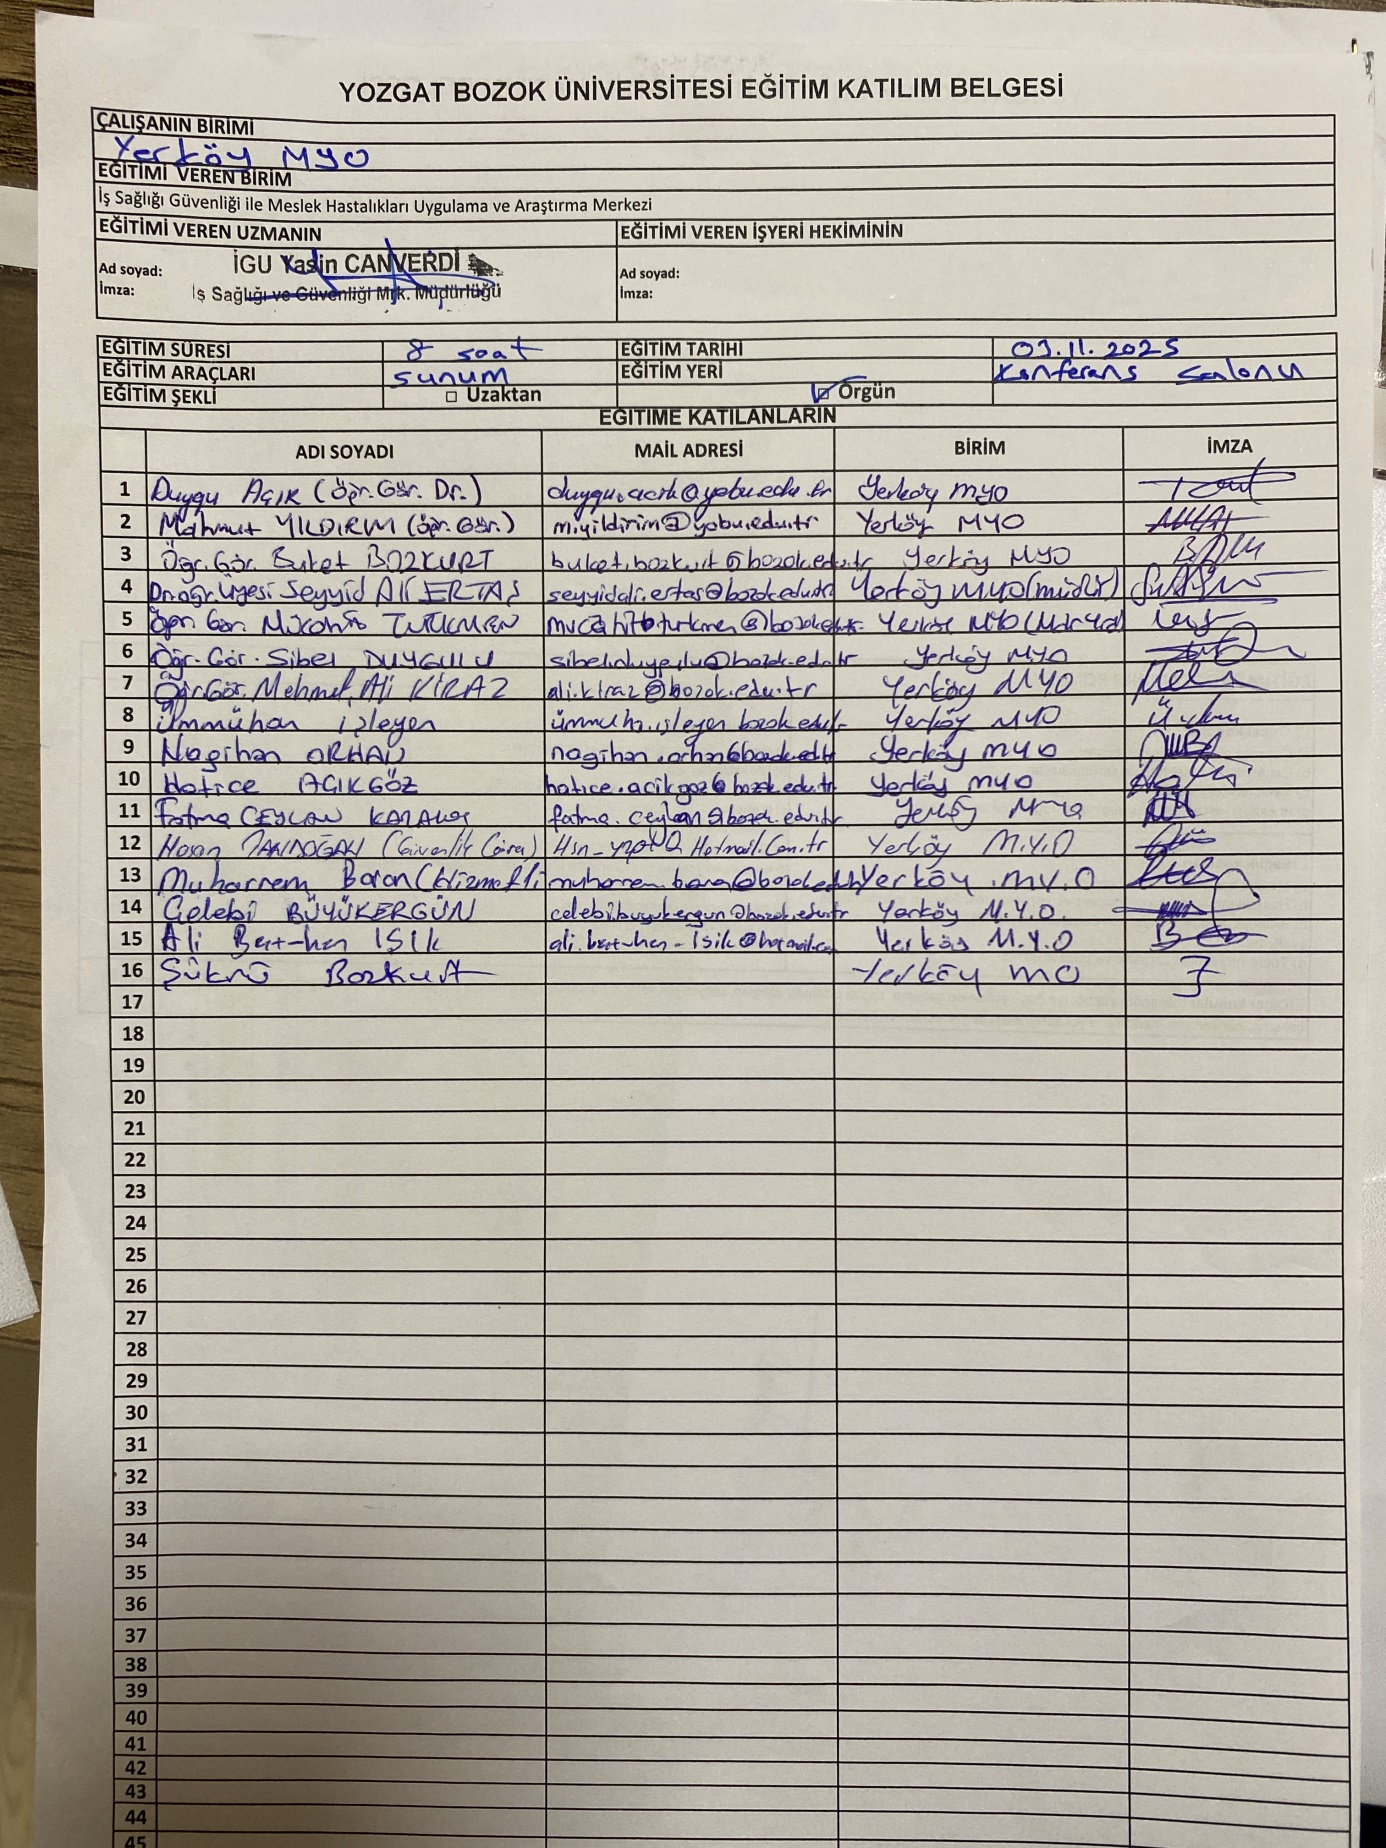 YOZGAT BOZOK ÜNİVERSİTESİ EĞİTİM KATILIM BELGESİ
ÇALIŞANIN BİRİMİ
Yerköy MYO
EĞİTİMİ VEREN BİRİM
İş Sağlığı Güvenliği ile Meslek Hastalıkları Uygulama ve Araştırma Merkezi
EĞİTİMİ VEREN UZMANIN EĞİTİMİ VEREN İŞYERİ HEKİMİNİN
Ad soyad: İGU Yasin CANVERDİ Ad soyad:
İmza: İş Sağlığı ve Güvenliği Mrk. Müdürlüğü İmza:
EĞİTİM SÜRESİ 8 saat EĞİTİM TARİHİ 03.11.2025
EĞİTİM ARAÇLARI sunum EĞİTİM YERİ Konferans Salonu
EĞİTİM ŞEKLİ □ Uzaktan ☑ Örgün
EĞİTİME KATILANLARIN
ADI SOYADI MAİL ADRESİ BİRİM İMZA
1 Duygu AÇIK (Öğr. Gör. Dr.) duygu.acik@yobu.edu.tr Yerköy MYO
2 Mahmut YILDIRIM (Öğr. Gör.) m.yildirim@yobu.edu.tr Yerköy MYO
3 Öğr. Gör. Buket BOZKURT buket.bozkurt@bozok.edu.tr Yerköy MYO
4 Dr. Öğr. Üyesi Seyyid Ali ERTAŞ seyyidali.ertas@bozok.edu.tr Yerköy MYO (müdür)
5 Öğr. Gör. TÜRKMEN Yerköy MYO
6 Öğr. Gör. Sibel DUYGULU sibel.duygulu@bozok.edu.tr Yerköy MYO
7 Öğr. Gör. Mehmet Ali KİRAZ ali.kiraz@bozok.edu.tr Yerköy MYO
8 Ümmühan işleyen Yerköy MYO
9 Nagihan ORHAN nagihan.orhan@bozok.edu.tr Yerköy MYO
10 Hatice AÇIKGÖZ hatice.acikgoz@bozok.edu.tr Yerköy MYO
11 Fatma CEYLAN fatma.ceylan@bozok.edu.tr Yerköy MYO
12 Hasan (Güvenlik Yerköy M.Y.O
13 Muharrem Baran (Hizmetli Yerköy M.Y.O
14 Çelebi BÜYÜKERGÜN celebi.buyukergun@bozok.edu.tr Yerköy M.Y.O.
15 Ali IŞIK Yerköy M.Y.O
16 Şükrü Bozkurt Yerköy MO
17
18
19
20
21
22
23
24
25
26
27
28
29
30
31
32
33
34
35
36
37
38
39
40
41
42
43
44
45